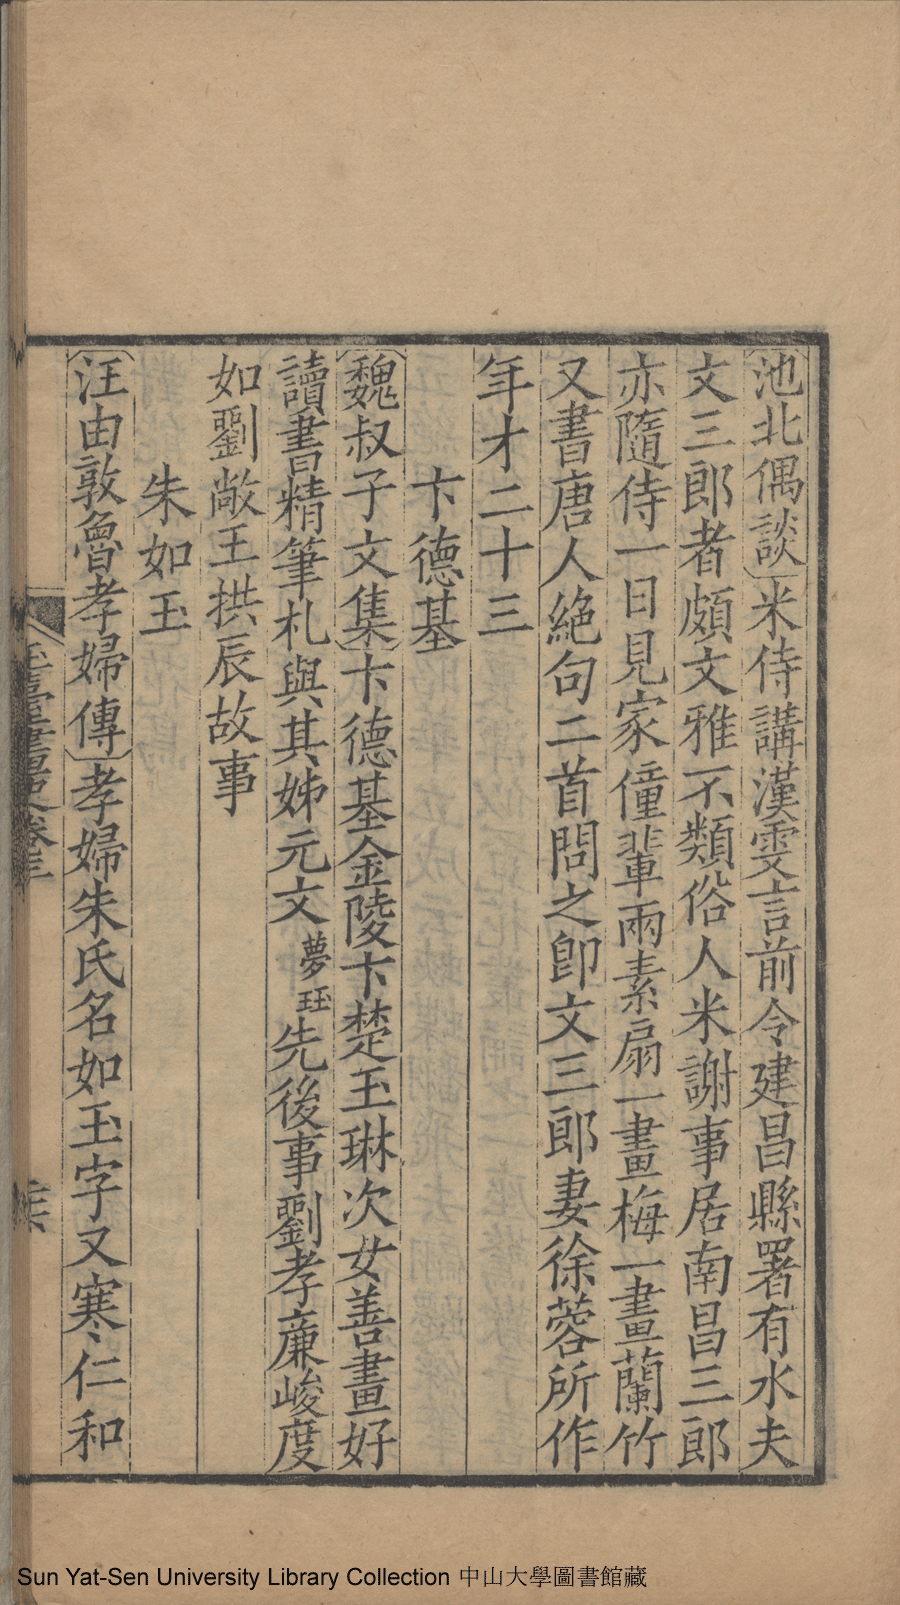 池北偶談米侍講漢雯言前令建昌縣署有水夫
文三郎者頗文雅不類俗人米謝事居南昌三郎
亦隨侍一日見家僮輩兩素扇一畫梅一畫蘭竹
又書唐人絕句二首問之卽文三郎妻徐蓉所作
年才二十三
卞德基
魏叔子文集卞德基金陵卞楚玉琳次女善畫好
讀書精筆札與其姊元文夢珏先後事劉孝廉峻度
如劉敞王拱辰故事
朱如玉
汪由敦魯孝婦傳孝婦朱氏名如玉字又寒仁和
玉臺畫史卷三
Sun Yat-Sen University Library Collection 中山大學圖書館藏